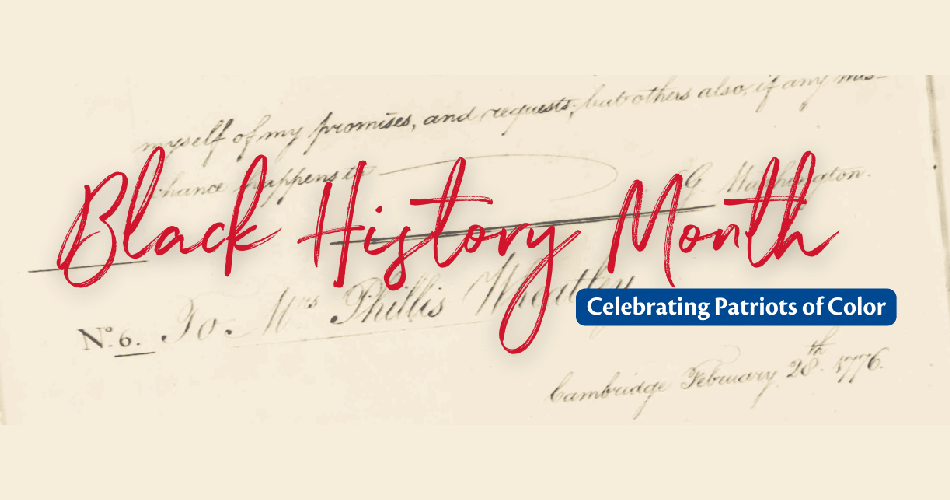 myself of my promises, and requests, but others also, if any mis-
chance happens to
G. Washington.
Black History Month
Celebrating Patriots of Color
No. 6. To. Mrs Phillis Wheatley
Cambridge February 28th. 1776.